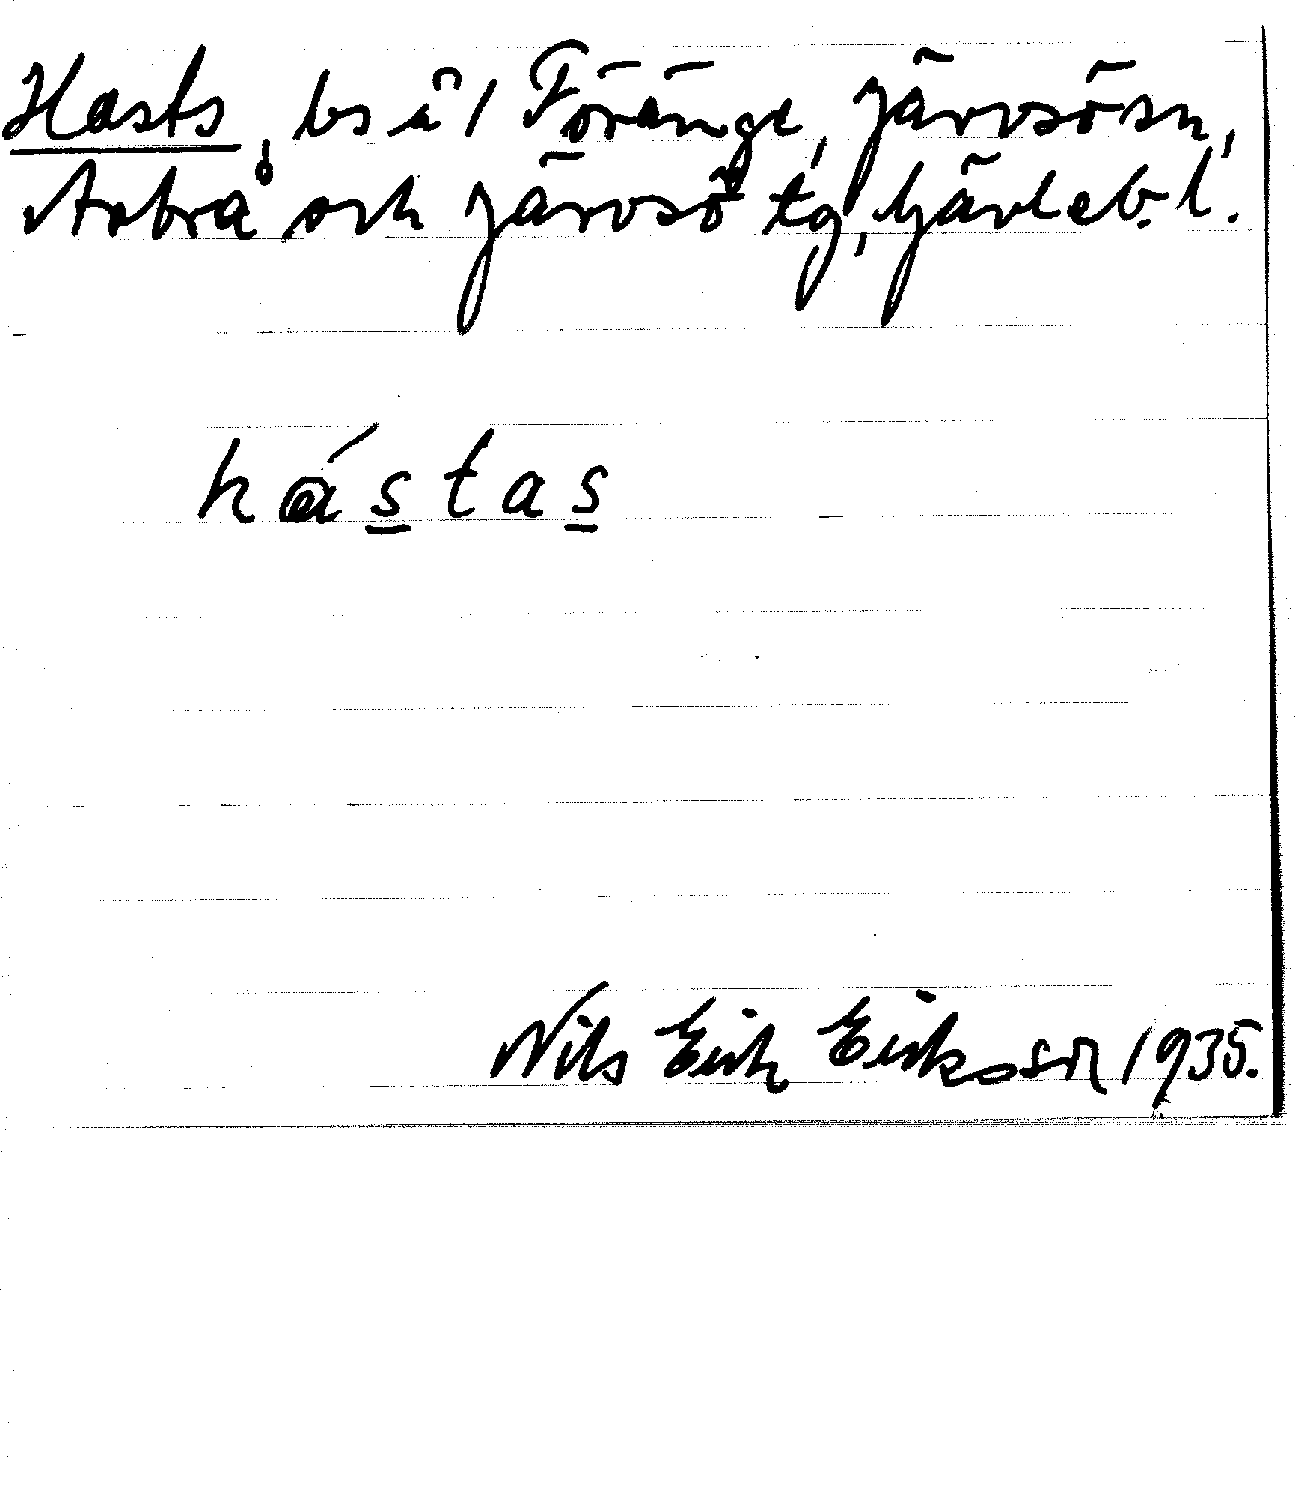 Hasts, bs å 1 Föränge, Järvsö sn,
Arbrå och Järvsö tg, Gävleb. l.
hástas
Nils Erik Eriksson 1935.